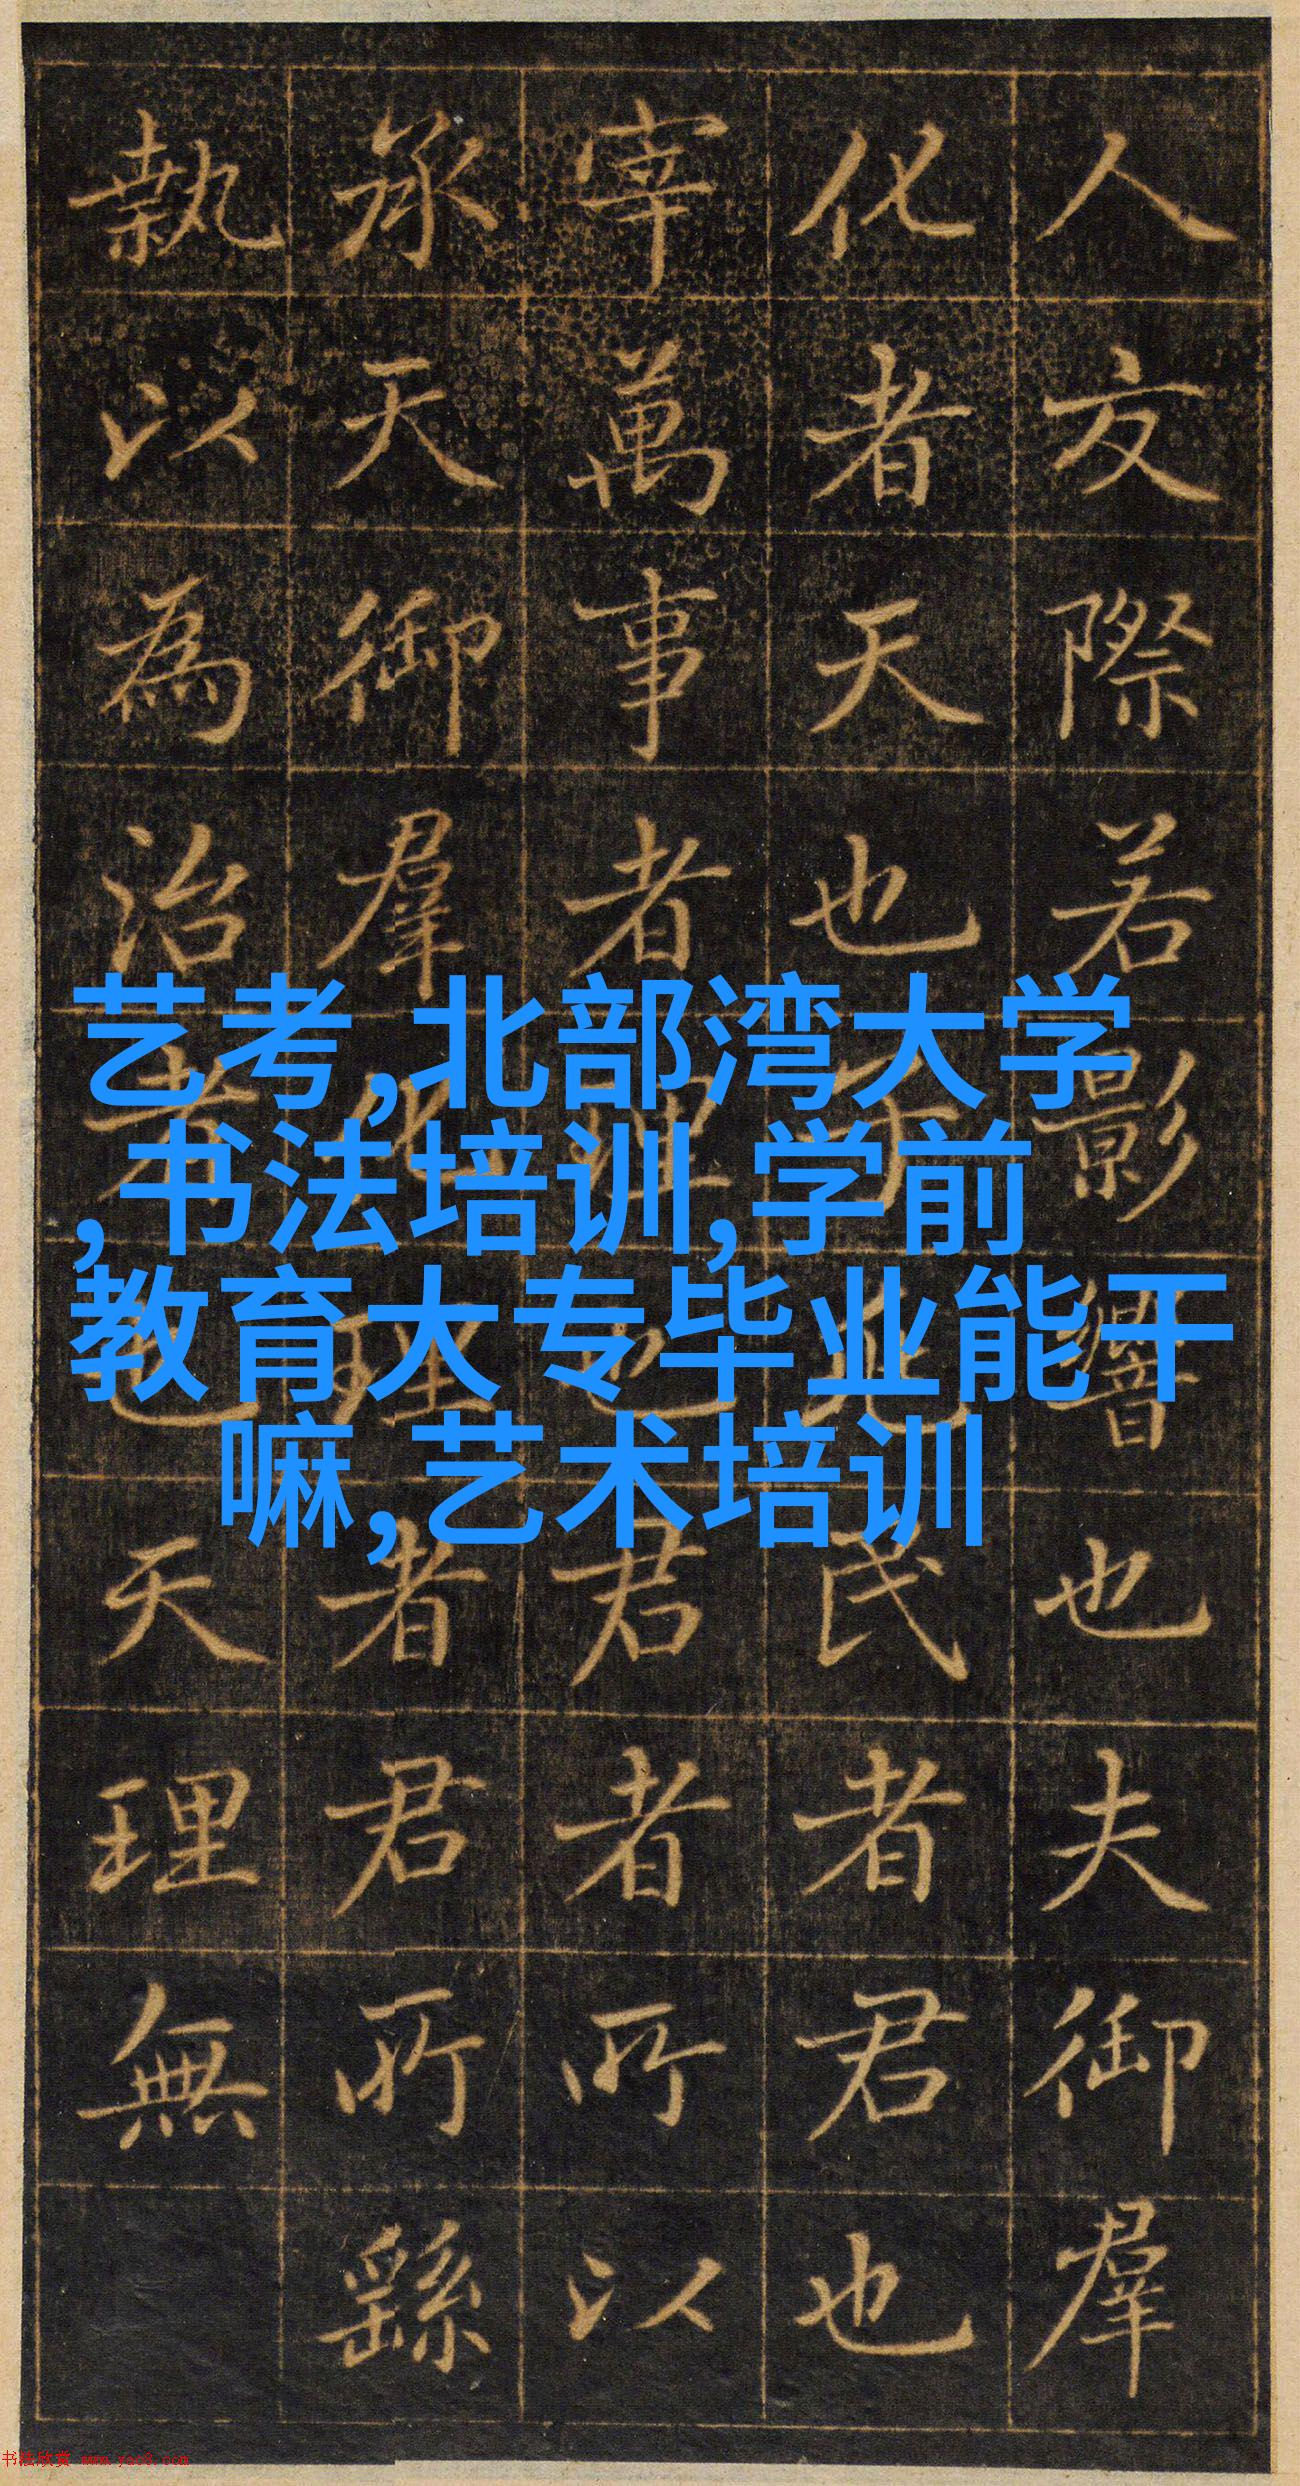 人交際若影響也夫御羣
化者天也子兆民者君也
宰萬事者理也君者所以
承天御羣化理者君所繇
執以為治者也天理無
艺考,北部湾大学
,书法培训,学前
教育大专毕业能干
嘛,艺术培训
书法欣赏 www.yac8.com